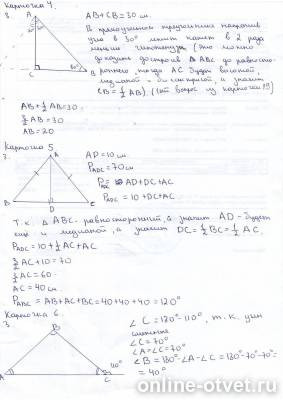 Карточка 4.
3.
A
30°
60°
C
B
AB+CB=30 см.
В прямоугольном треугольнике напротив
угла в 30° лежит катет в 2 раза
меньше гипотенузы (это можно
доказать достроив △ABC до равносто-
роннего, тогда AC будет высотой,
медианой и биссектрисой, а значит
CB = ½ AB). (1ый вопрос из карточки 19)
AB+½AB=30
3/2 AB=30
AB=20
Карточка 5
3.
A
B
D
C
AD=10 см
P ADC=70 см
P ADC = AD+DC+AC
P ABC
Т.к. △ABC-равносторонний, а значит AD-будет
еще и медианой, а значит DC=½BC=½AC.
P ADC=10+½AC+AC
3/2 AC+10=70
3/2 AC=60
AC=40 см.
P ABC=AB+AC+BC=40+40+40=120°
Карточка 6.
3.
B
A
C
110°
∠C=180°-110°, т.к. угол
смежные
∠C=70°
∠A=∠C=70°
∠B=180°-∠A-∠C=180°-70°-70°=
=40°
online-otvet.ru